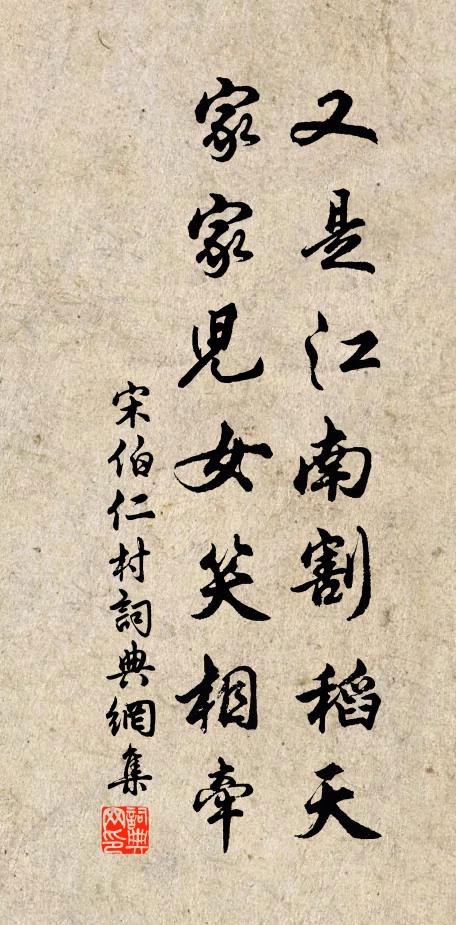 又是江南割稻天
家家兒女笑相牽
宋伯仁村詞典網集
詞典网印